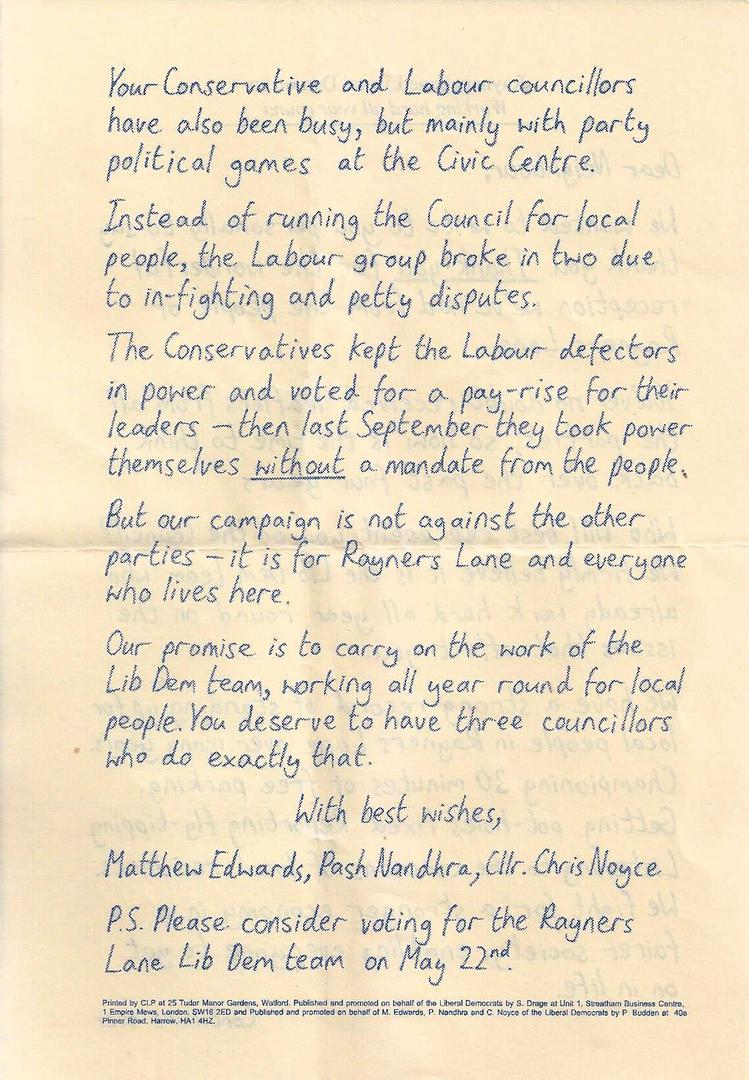 Your Conservative and Labour councillors
have also been busy, but mainly with party
political games at the Civic Centre.
Instead of running the Council for local
people, the Labour group broke in two due
to in-fighting and petty disputes.
The Conservatives kept the Labour defectors
in power and voted for a pay-rise for their
leaders – then last September they took power
themselves without a mandate from the people.
But our campaign is not against the other
parties – it is for Rayners Lane and everyone
who lives here.
Our promise is to carry on the work of the
Lib Dem team, working all year round for local
people. You deserve to have three councillors
who do exactly that.
With best wishes,
Matthew Edwards, Pash Nandhra, Cllr. Chris Noyce
P.S. Please consider voting for the Rayners
Lane Lib Dem team on May 22nd.
Printed by CLP at 25 Tudor Manor Gardens, Watford. Published and promoted on behalf of the Liberal Democrats by S. Drage at Unit 1, Streatham Business Centre,
1 Empire Mews, London. SW16 2ED and Published and promoted on behalf of M. Edwards, P. Nandhra and C. Noyce of the Liberal Democrats by P. Budden at 40a
Pinner Road, Harrow, HA1 4HZ.